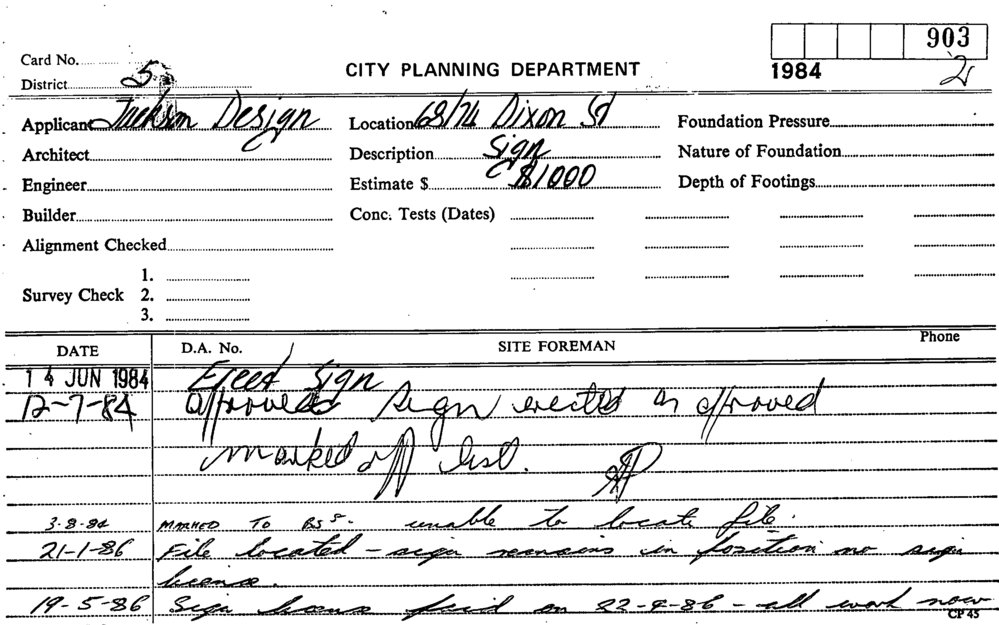 903
Card No.
CITY PLANNING DEPARTMENT
1984 2
District 5
Applicant Jackson Design Location 68/74 Dixon St Foundation Pressure
Architect Description Sign Nature of Foundation
Engineer Estimate $ $1000 Depth of Footings
Builder Conc. Tests (Dates)
Alignment Checked
1.
Survey Check 2.
3.
DATE D.A. No. SITE FOREMAN Phone
14 JUN 1984 Erect Sign
12-7-84 approved sign erected as approved
marked off list.
3-8-84 MARKED TO unable to locate file.
21-1-86 File located - sign remains in position no sign
licence.
19-5-86 Sign licence paid on 22-4-86 - all work now
CP 45